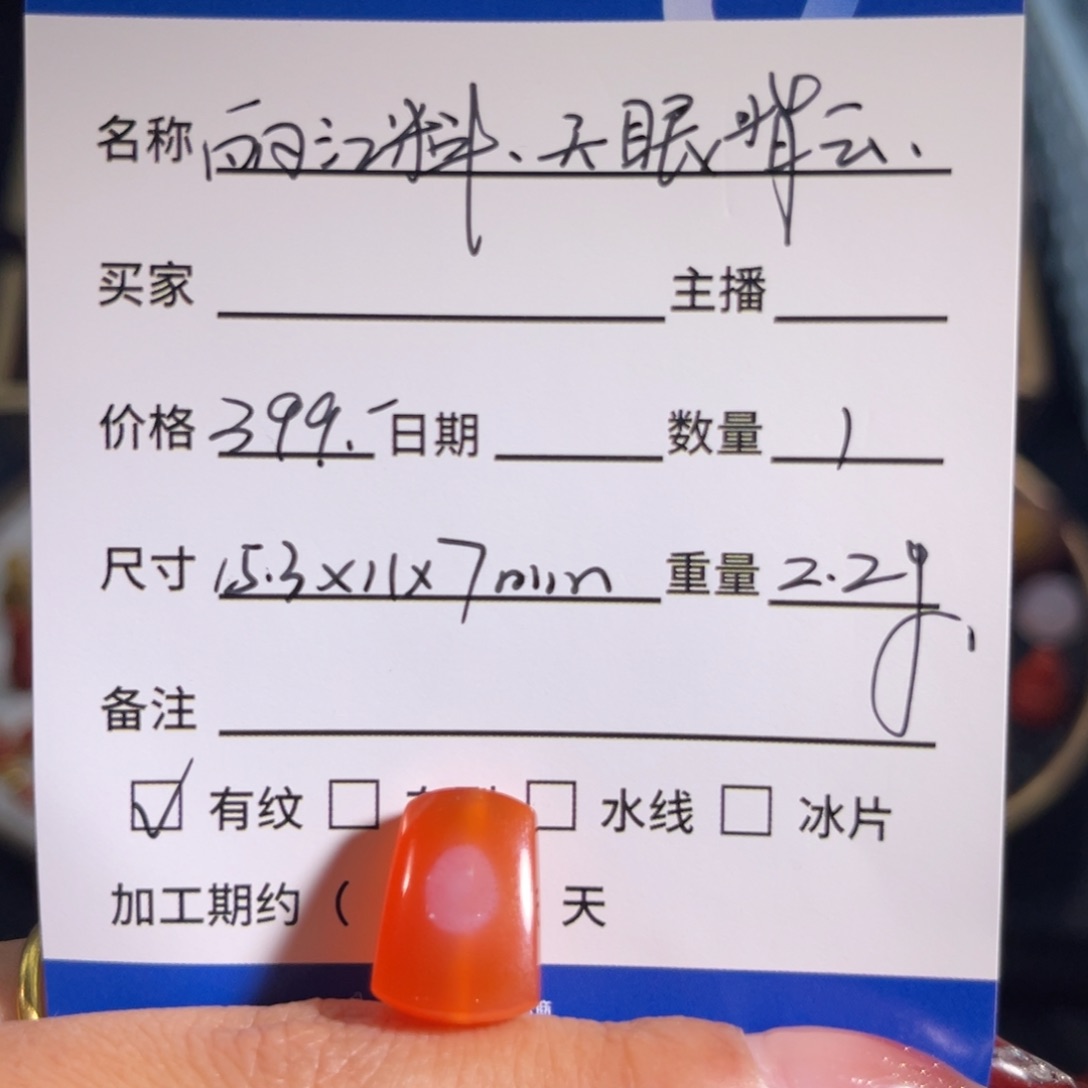 名称 丽江料、天眼背云、
买家 主播
价格 399.- 日期 数量 1
尺寸 15.3×11×7mm 重量 2.2g、
备注
☑ 有纹 □ □ 水线 □ 冰片
加工期约 ( 天